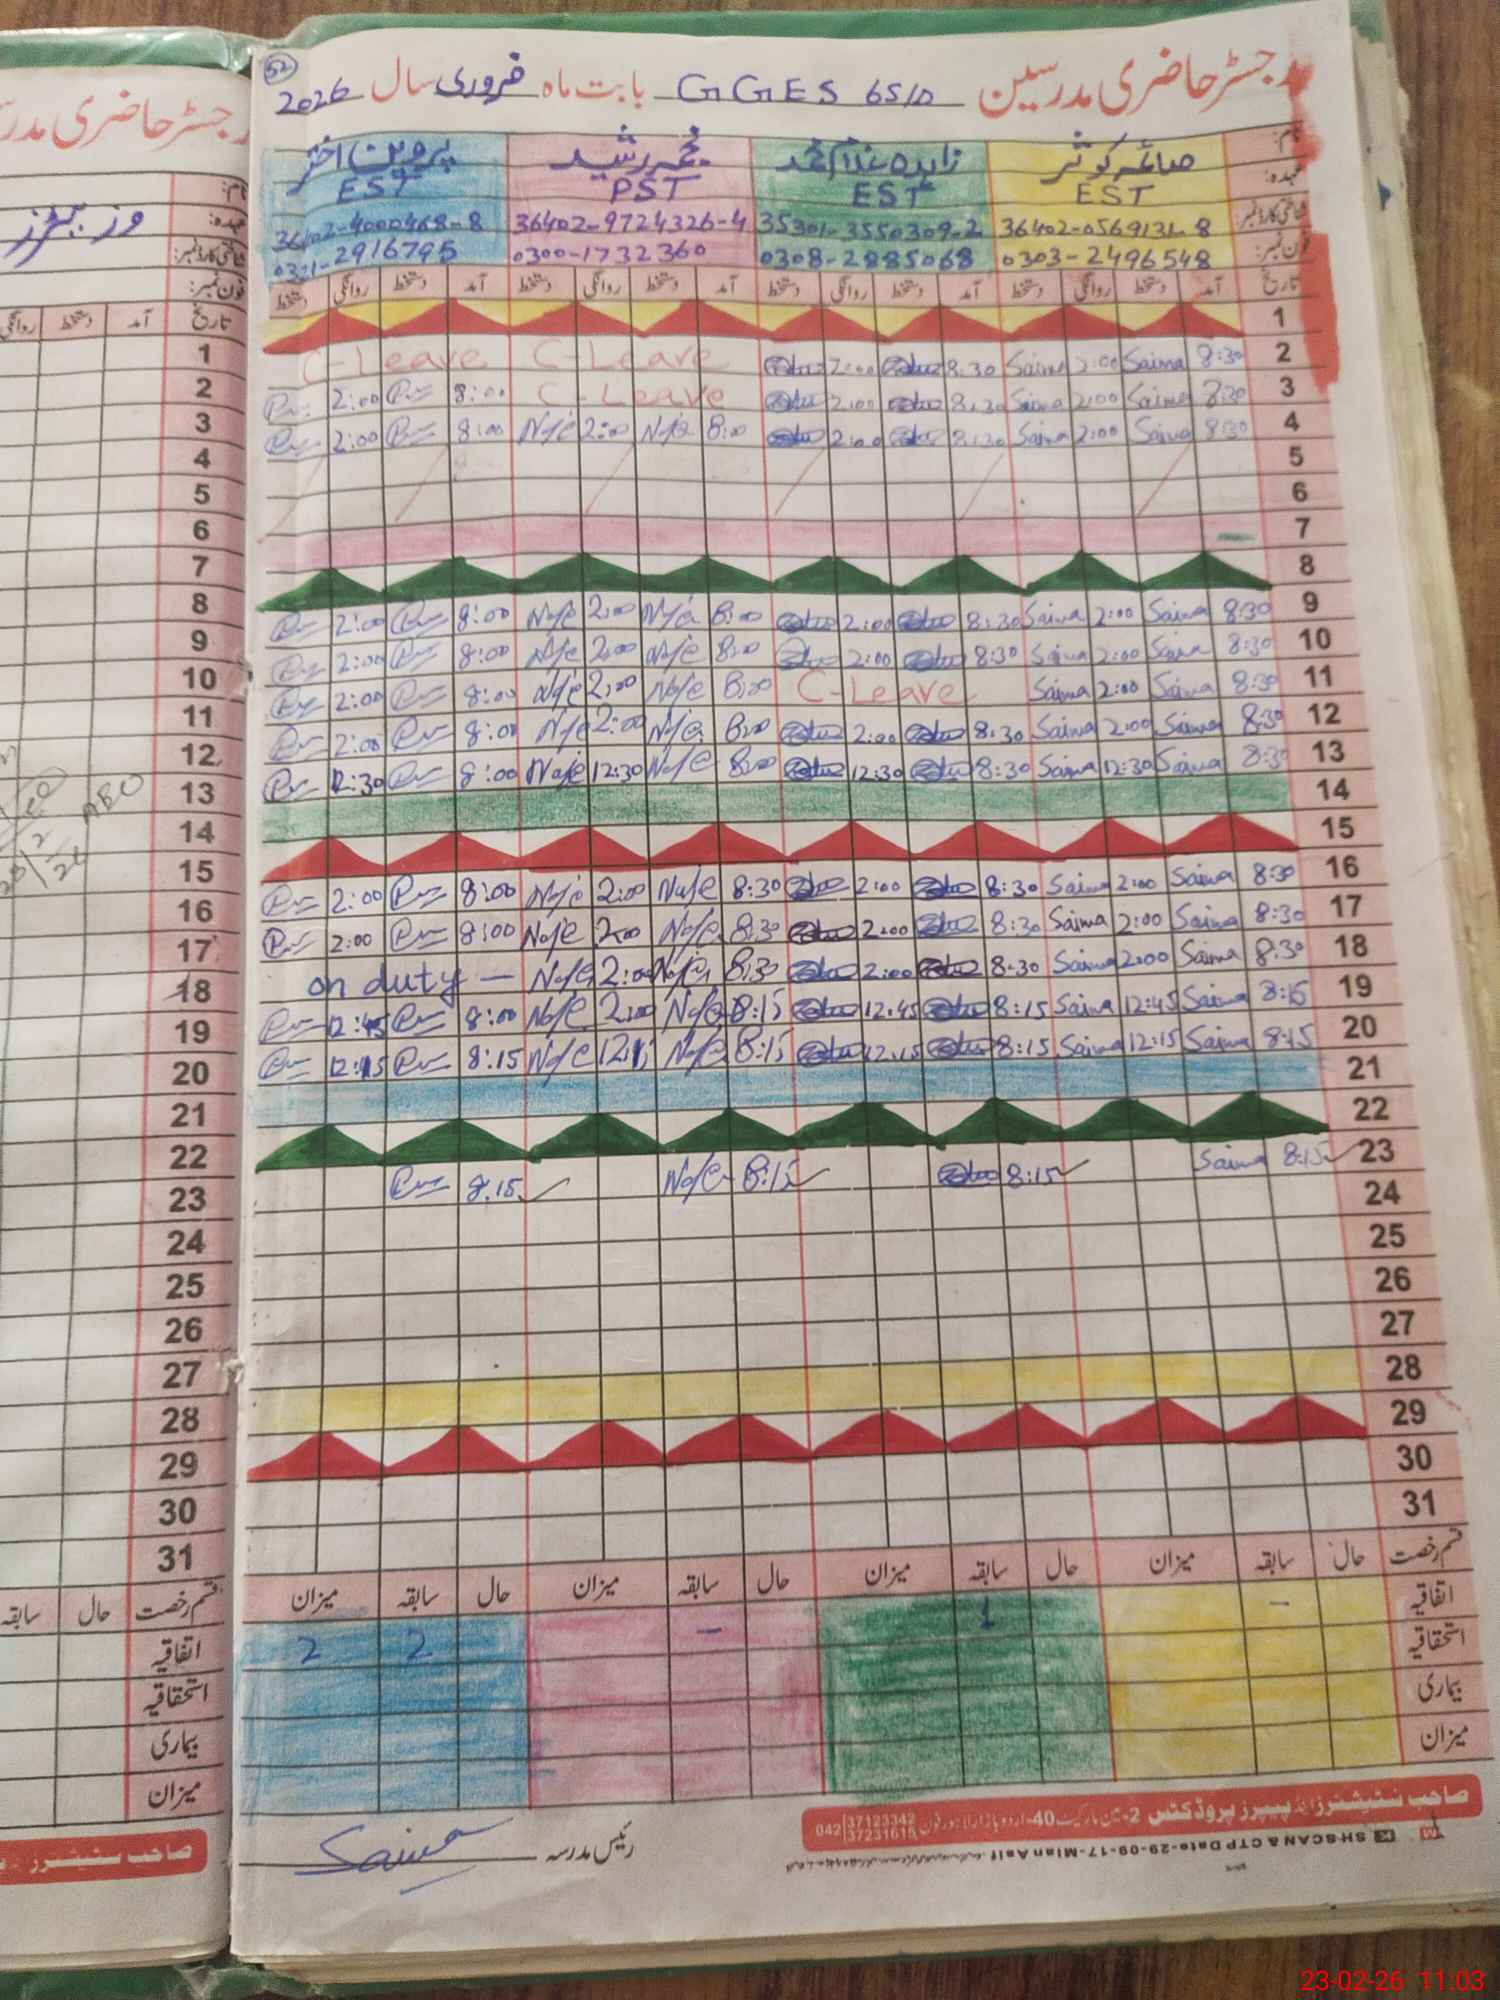 رجسٹر حاضری مدرسین GGES 65/D بابت ماہ فروری سال 2026
52
نام: صائمہ کوثر زاہدہ غلام محمد نجمہ رشید پروین اختر
عہدہ: EST EST PST EST
شناختی کارڈ نمبر: 36402-0569131-8 35301-3550309-2 36402-9724326-4 36402-4000468-8
فون نمبر: 0303-2496548 0308-2885068 0300-1732360 0321-2916795
تاریخ آمد دستخط روانگی دستخط آمد دستخط روانگی دستخط آمد دستخط روانگی دستخط آمد دستخط روانگی دستخط
1
C-Leave C-Leave 2:00 8:30 Saima 2:00 Saima 8:30 2
2:00 8:00 C-Leave 2:00 8:30 Saima 2:00 Saima 8:30 3
2:00 8:00 2:00 8:00 2:00 8:30 Saima 2:00 Saima 8:30 4
5
6
7
8
2:00 8:00 2:00 8:00 2:00 8:30 Saima 2:00 Saima 8:30 9
2:00 8:00 2:00 8:00 2:00 8:30 Saima 2:00 Saima 8:30 10
2:00 8:00 2:00 8:00 C-Leave Saima 2:00 Saima 8:30 11
2:00 8:00 2:00 8:00 2:00 8:30 Saima 2:00 Saima 8:30 12
12:30 8:00 12:30 8:00 12:30 8:30 Saima 12:30 Saima 8:30 13
14
15
2:00 8:00 2:00 8:30 2:00 8:30 Saima 2:00 Saima 8:30 16
2:00 8:00 2:00 8:30 2:00 8:30 Saima 2:00 Saima 8:30 17
on duty — 2:00 8:30 2:00 8:30 Saima 2:00 Saima 8:30 18
12:45 8:00 2:00 8:15 12:45 8:15 Saima 12:45 Saima 8:15 19
12:15 8:15 12:15 8:15 12:15 8:15 Saima 12:15 Saima 8:15 20
21
22
8:15 8:15 8:15 Saima 8:15 23
24
25
26
27
28
29
30
31
قسم رخصت حال سابقہ میزان حال سابقہ میزان حال سابقہ میزان حال سابقہ میزان
اتفاقیہ - 1 - 2 2
استحقاقیہ
بیماری
میزان
رئیس مدرسہ Saima
صاحب سٹیشنرز اینڈ پیپرز پروڈکٹس 2-مین مارکیٹ 40-اردو بازار لاہور فون 37123342 37231615 042
SH-SCAN & CTP Date-29-09-17-Mian Asif
رجسٹر حاضری مدر
نام:
عہدہ: وزیٹرز
شناختی کارڈ نمبر:
فون نمبر:
تاریخ آمد دستخط روانگی
1
2
3
4
5
6
7
8
9
10
11
12
13
14
15
16
17
18
19
20
21
22
23
24
25
26
27
28
29
30
31
AEO
قسم رخصت حال سابقہ
اتفاقیہ
استحقاقیہ
بیماری
میزان
صاحب سٹیشنرز
23-02-26 11:03